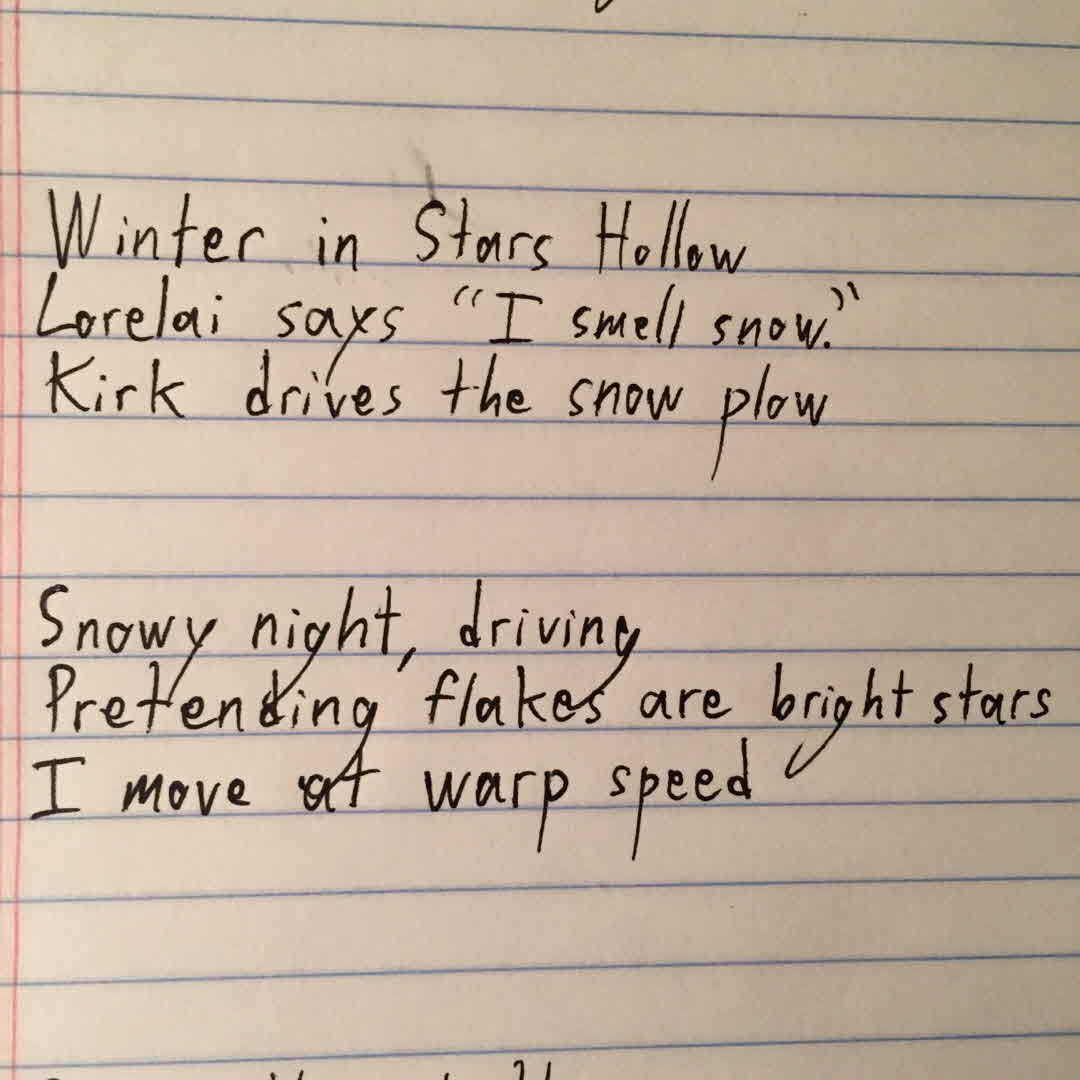 Winter in Stars Hollow
Lorelai says "I smell snow."
Kirk drives the snow plow
Snowy night, driving
Pretending flakes are bright stars
I move at warp speed